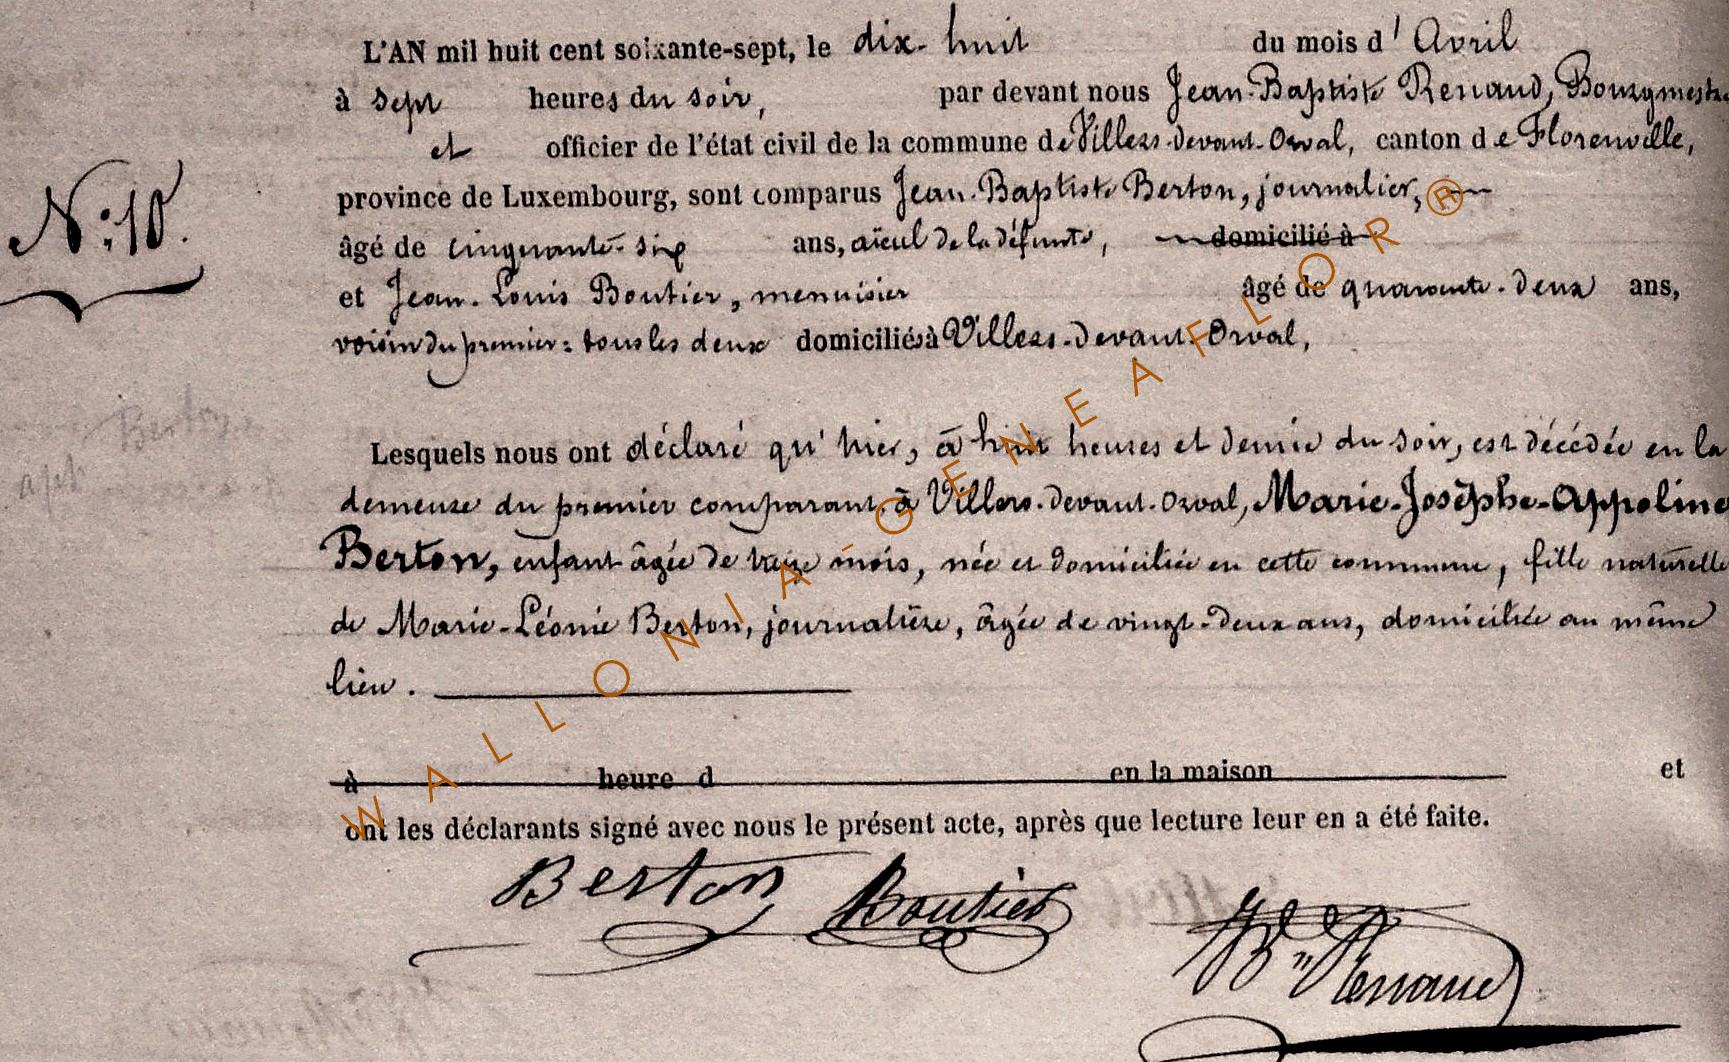 L'AN mil huit cent soixante-sept, le dix-huit du mois d'Avril
à sept heures du soir, par devant nous Jean-Baptiste Renaud, Bourgmestre
et officier de l'état civil de la commune de Villers-devant-Orval, canton de Florenville,
province de Luxembourg, sont comparus Jean-Baptiste Berton, journalier,
N°: 10.
âgé de cinquante-six ans, aïeul de la défunte, domicilié à
et Jean-Louis Boutier, menuisier âgé de quarante-deux ans,
voisin du premier: tous les deux domiciliés à Villers-devant-Orval,
Berton
Lesquels nous ont déclaré qu'hier, à huit heures et demie du soir, est décédée en la
demeure du premier comparant, à Villers-devant-Orval, Marie-Josèphe-Appoline
Berton, enfant âgée de mois, née et domiciliée en cette commune, fille naturelle
de Marie-Léonie Berton, journalière, âgée de vingt-deux ans, domiciliée au même
lieu.
à heure d en la maison et
ont les déclarants signé avec nous le présent acte, après que lecture leur en a été faite.
Berton Boutier Renaud
WALLONIA-GENEAFLOR®